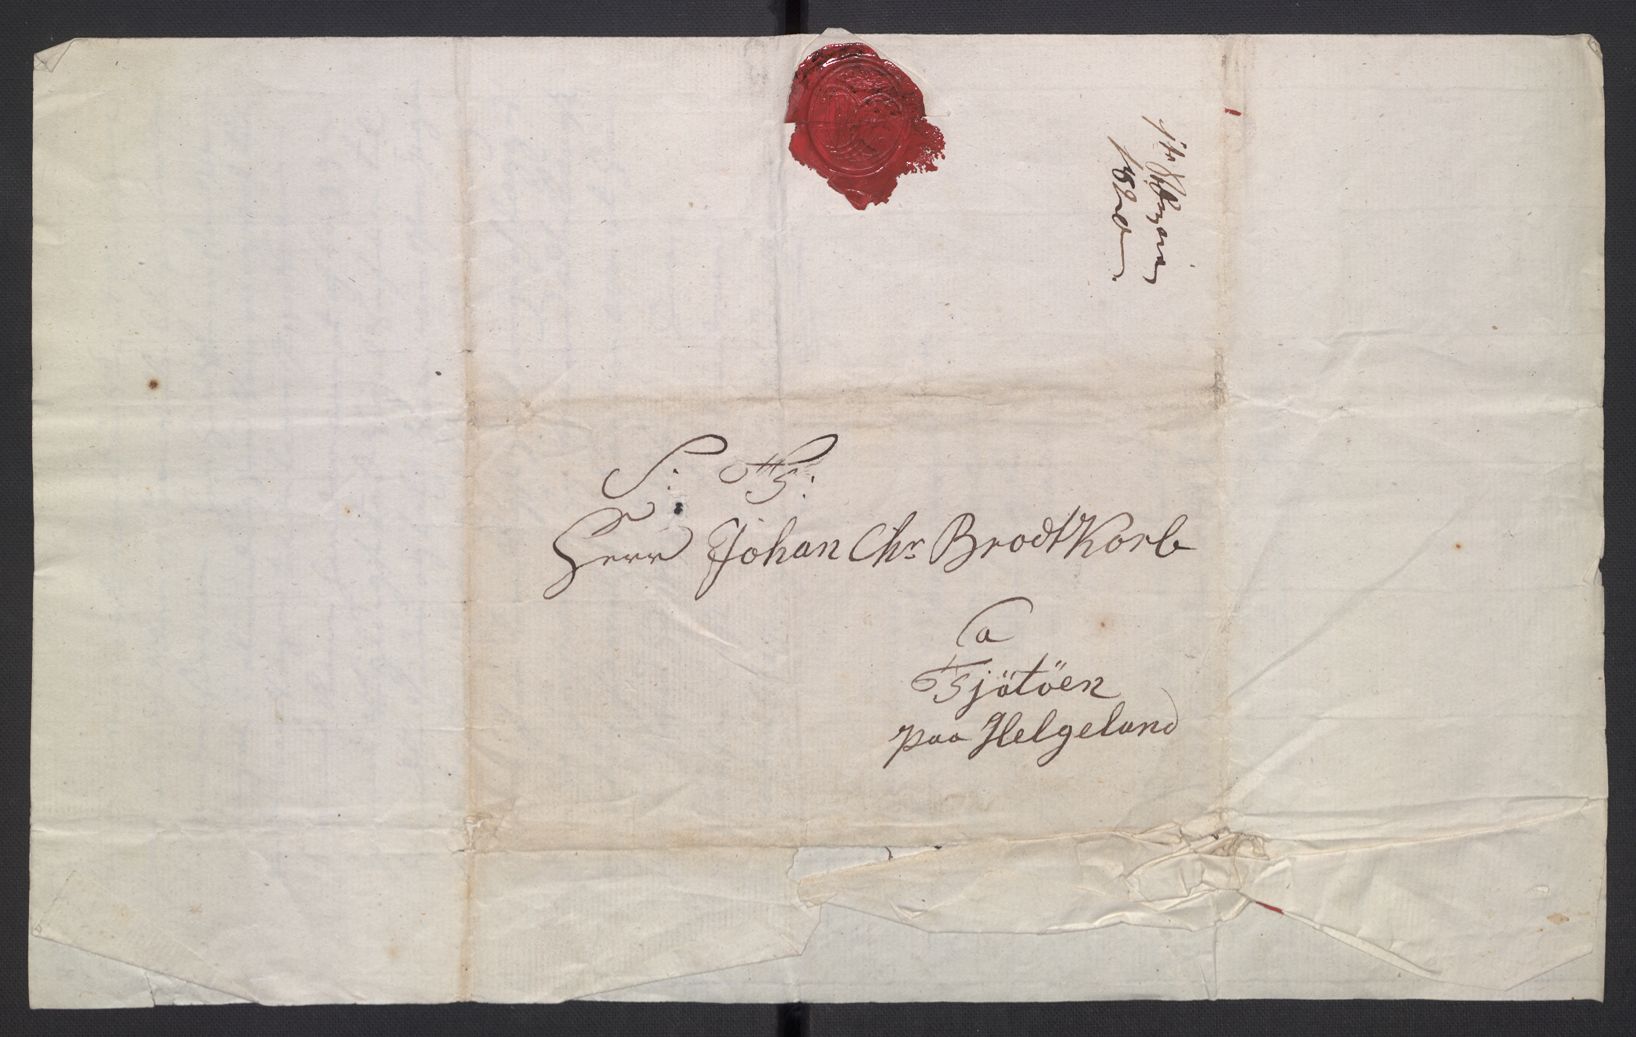 S: T:
Herr Johan Chr. BrodtKorb
a
Tjötöen
paa Helgeland
1820